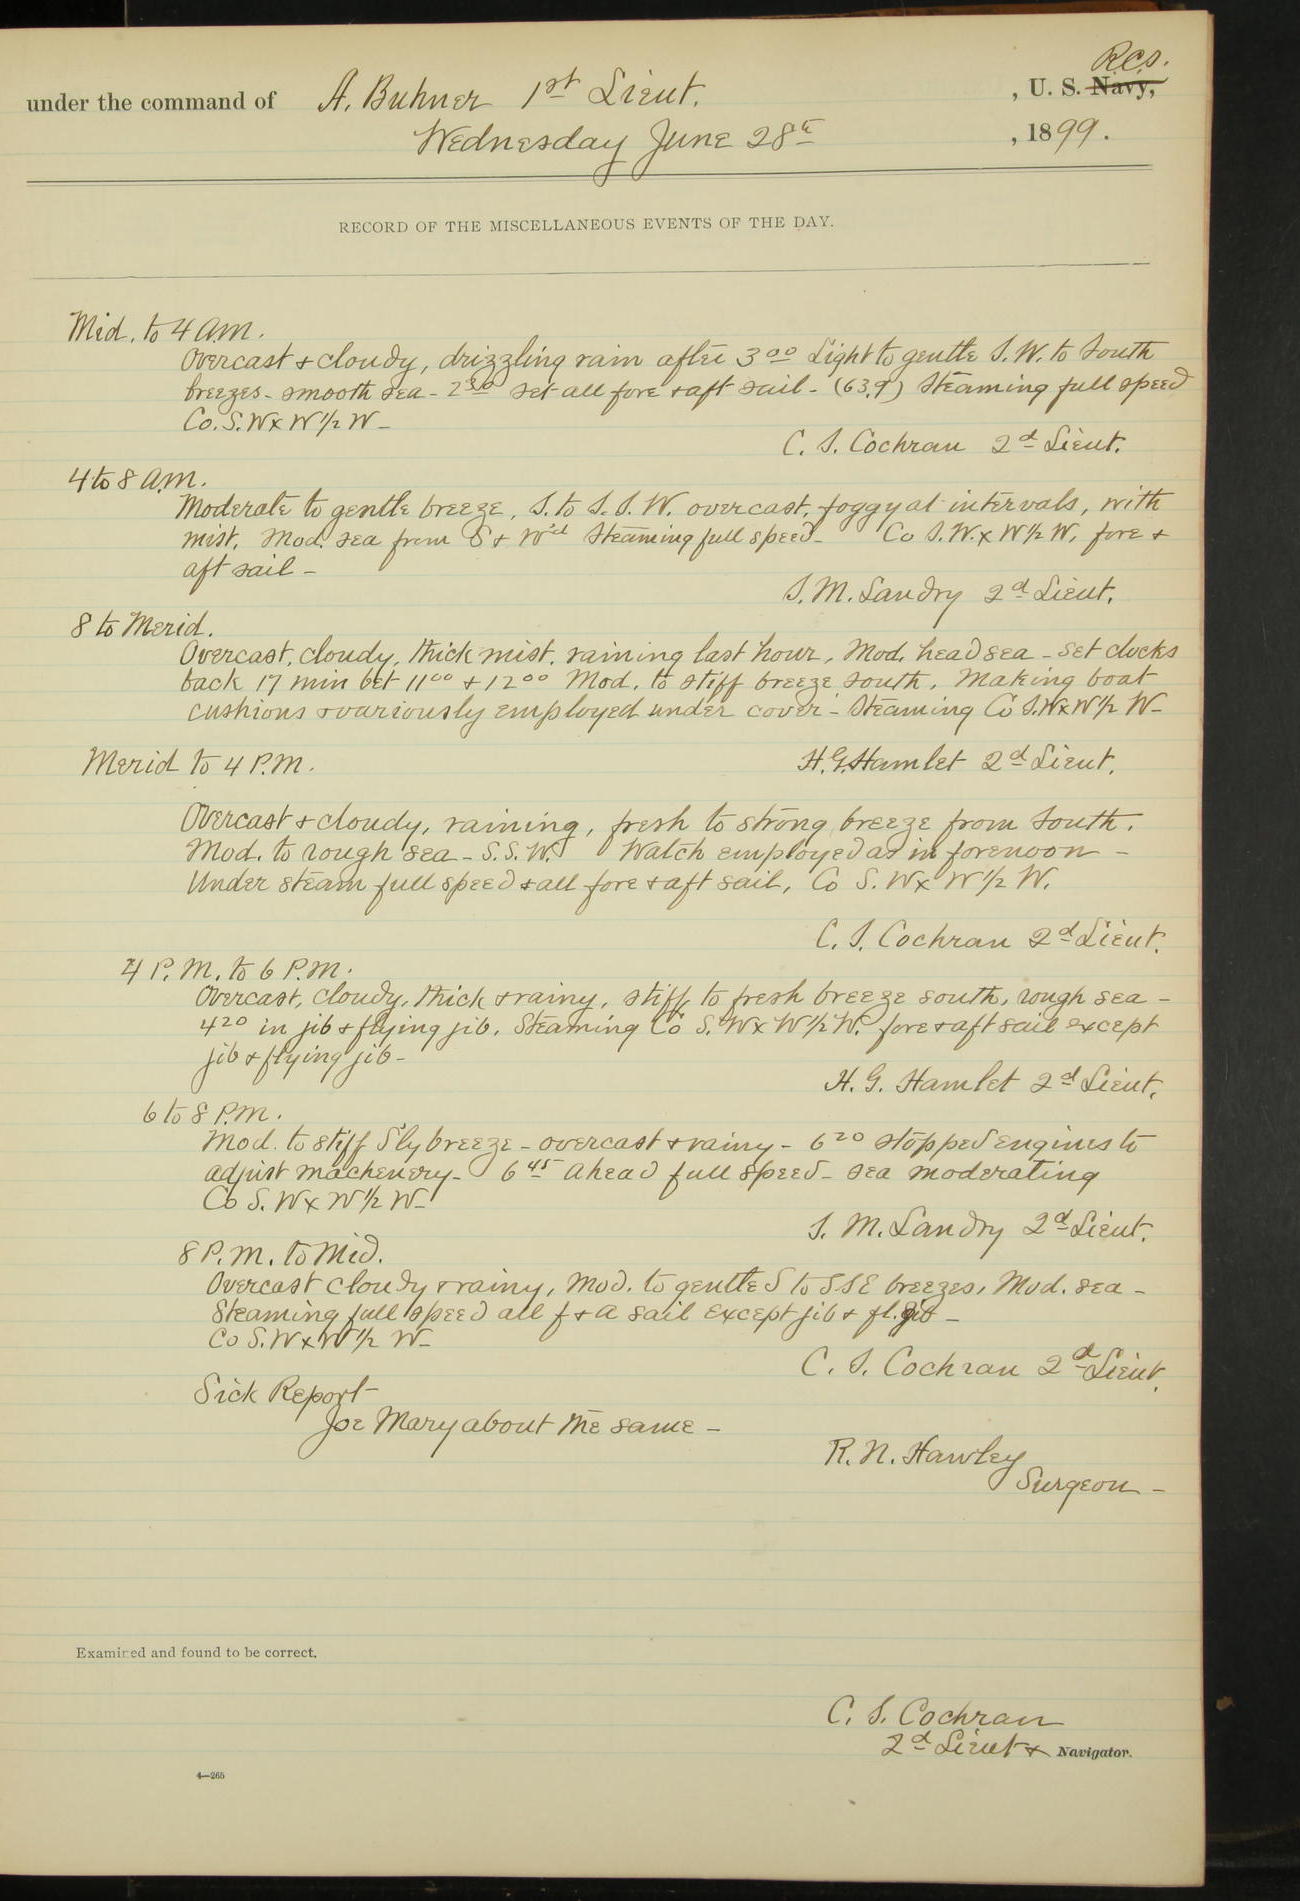 R.C.S.
under the command of A. Buhner 1st Lieut. , U. S. Navy,
Wednesday June 28th , 1899.
RECORD OF THE MISCELLANEOUS EVENTS OF THE DAY.
Mid. to 4 A.M.
Overcast + cloudy, drizzling rain after 3 00 Light to gentle S.W. to South
breezes - smooth sea - 2 30 set all fore + aft sail - (63.9) Steaming full speed
Co. S.W x W 1/2 W -
C. S. Cochran 2d Lieut.
4 to 8 A.M.
Moderate to gentle breeze, S. to S.S.W. overcast, foggy at intervals, with
mist. Mod. sea from S + W'd Steaming full speed - Co S.W. x W 1/2 W, fore +
aft sail -
S. M. Landry 2d Lieut.
8 to Merid.
Overcast, cloudy, thick mist, raining last hour, Mod. head sea - set clocks
back 17 min bet 11 00 + 12 00 Mod. to stiff breeze south. Making boat
cushions + variously employed under cover - Steaming Co S.W x W 1/2 W -
Merid to 4 P.M. H.G. Hamlet 2d Lieut.
Overcast + cloudy, raining, fresh to strong breeze from South.
Mod. to rough sea - S.S.W. Watch employed as in forenoon -
Under steam full speed + all fore + aft sail, Co S. W x W 1/2 W.
C. S. Cochran 2d Lieut.
4 P.M. to 6 P.M.
Overcast, cloudy, thick + rainy, stiff to fresh breeze south, rough sea -
4 20 in jib + flying jib. Steaming Co S. W x W 1/2 W. fore + aft sail except
jib + flying jib -
H. G. Hamlet 2d Lieut.
6 to 8 P.M.
Mod. to stiff S'ly breeze - overcast + rainy - 6 20 stopped engines to
adjust machenery - 6 45 ahead full speed - sea moderating
Co S. W x W 1/2 W -
S. M. Landry 2d Lieut.
8 P.M. to Mid.
Overcast cloudy + rainy, Mod. to gentle S to SSE breezes, Mod. sea -
Steaming full speed all f + a sail except jib + fl. jib -
Co S. W x W 1/2 W -
C. S. Cochran 2d Lieut.
Sick Report -
Joe Mary about the same -
R. N. Hawley
Surgeon -
Examined and found to be correct.
C. S. Cochran
2d Lieut + Navigator.
4—265